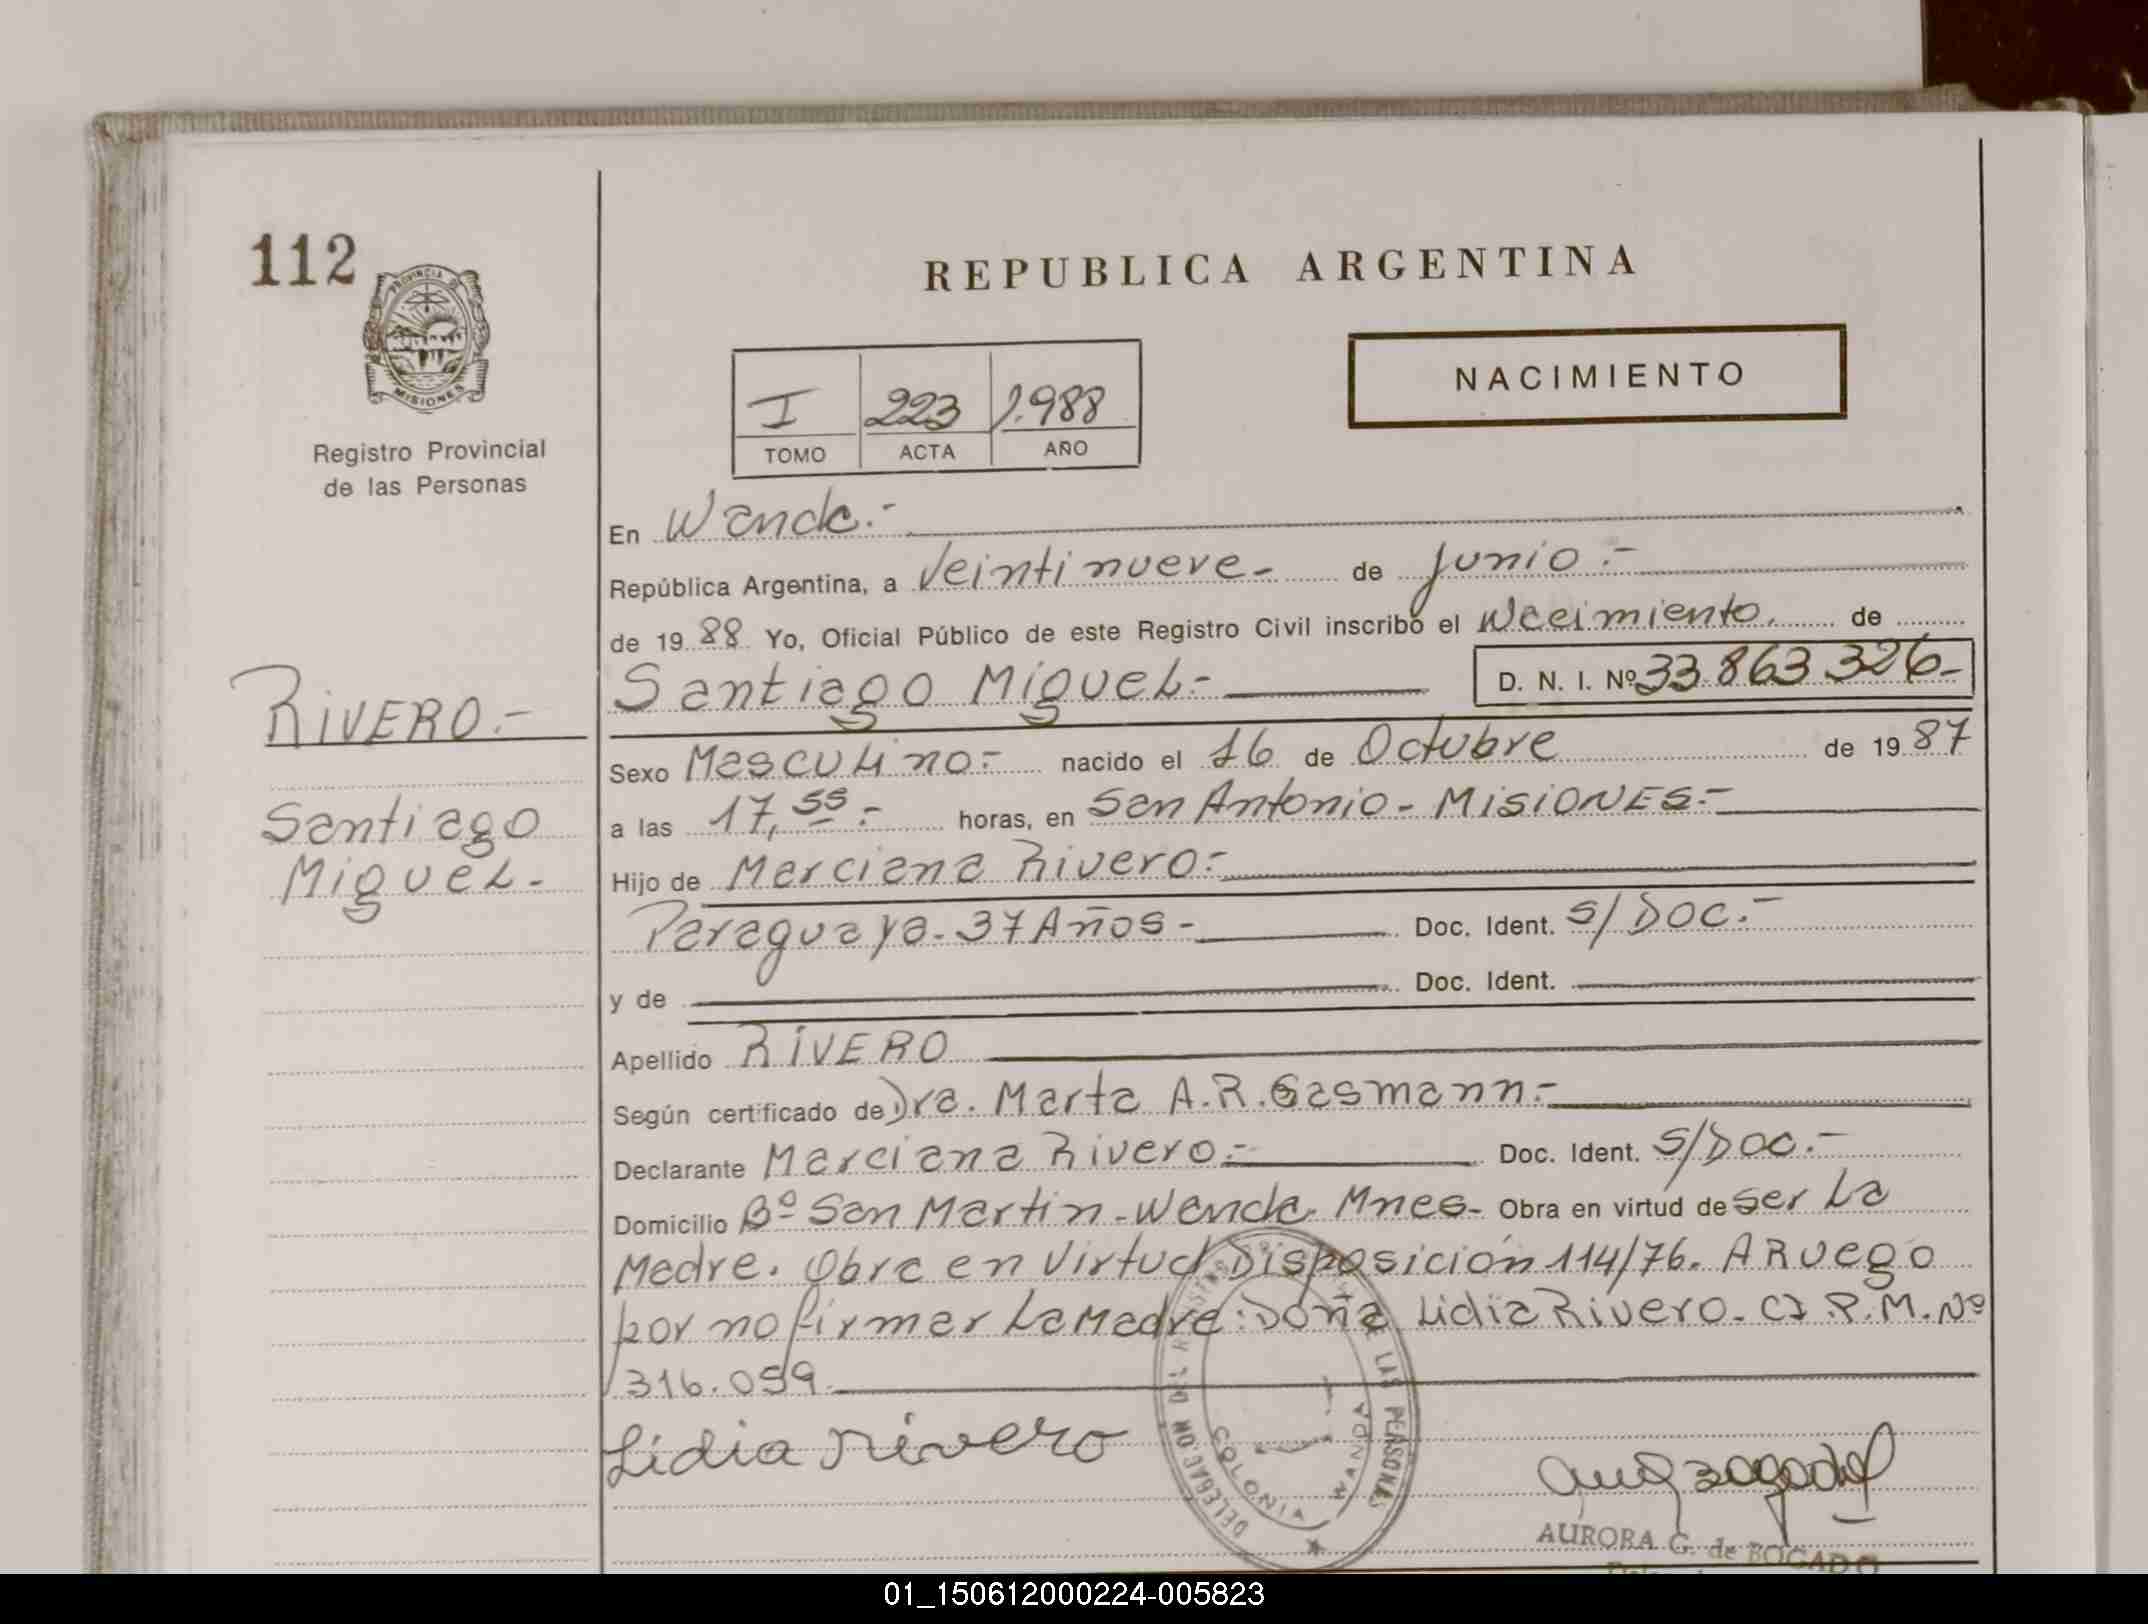 112
PROVINCIA DE
MISIONES
Registro Provincial
de las Personas
REPUBLICA ARGENTINA
NACIMIENTO
I 223 1.988
TOMO ACTA AÑO
En Wanda.-
República Argentina, a Veintinueve- de Junio.-
de 19 88 Yo, Oficial Público de este Registro Civil inscribo el Nacimiento. de
Santiago Miguel.- D. N. I. Nº 33.863 326-
RIVERO.-
Santiago
Miguel-
Sexo Masculino.- nacido el 16 de Octubre de 19 87
a las 17,55.- horas, en San Antonio - MISIONES.-
Hijo de Marciana Rivero.-
Paraguaya. 37 Años - Doc. Ident. S/DOC.-
y de Doc. Ident.
Apellido RIVERO
Según certificado de Dra. Marta A.R. Gasmann.-
Declarante Marciana Rivero.- Doc. Ident. S/DOC.-
Domicilio Bº San Martin - Wanda. Mnes- Obra en virtud de ser La
Madre. Obra en Virtud Disposición 114/76. A Ruego
por no firmar La Madre: Doña Lidia Rivero. CI.P.M. Nº
316.099.
Lidia Rivero
DELEGACION DEL REGISTRO DE LAS PERSONAS
COLONIA WANDA
AURORA G. de BOGADO
01_150612000224-005823